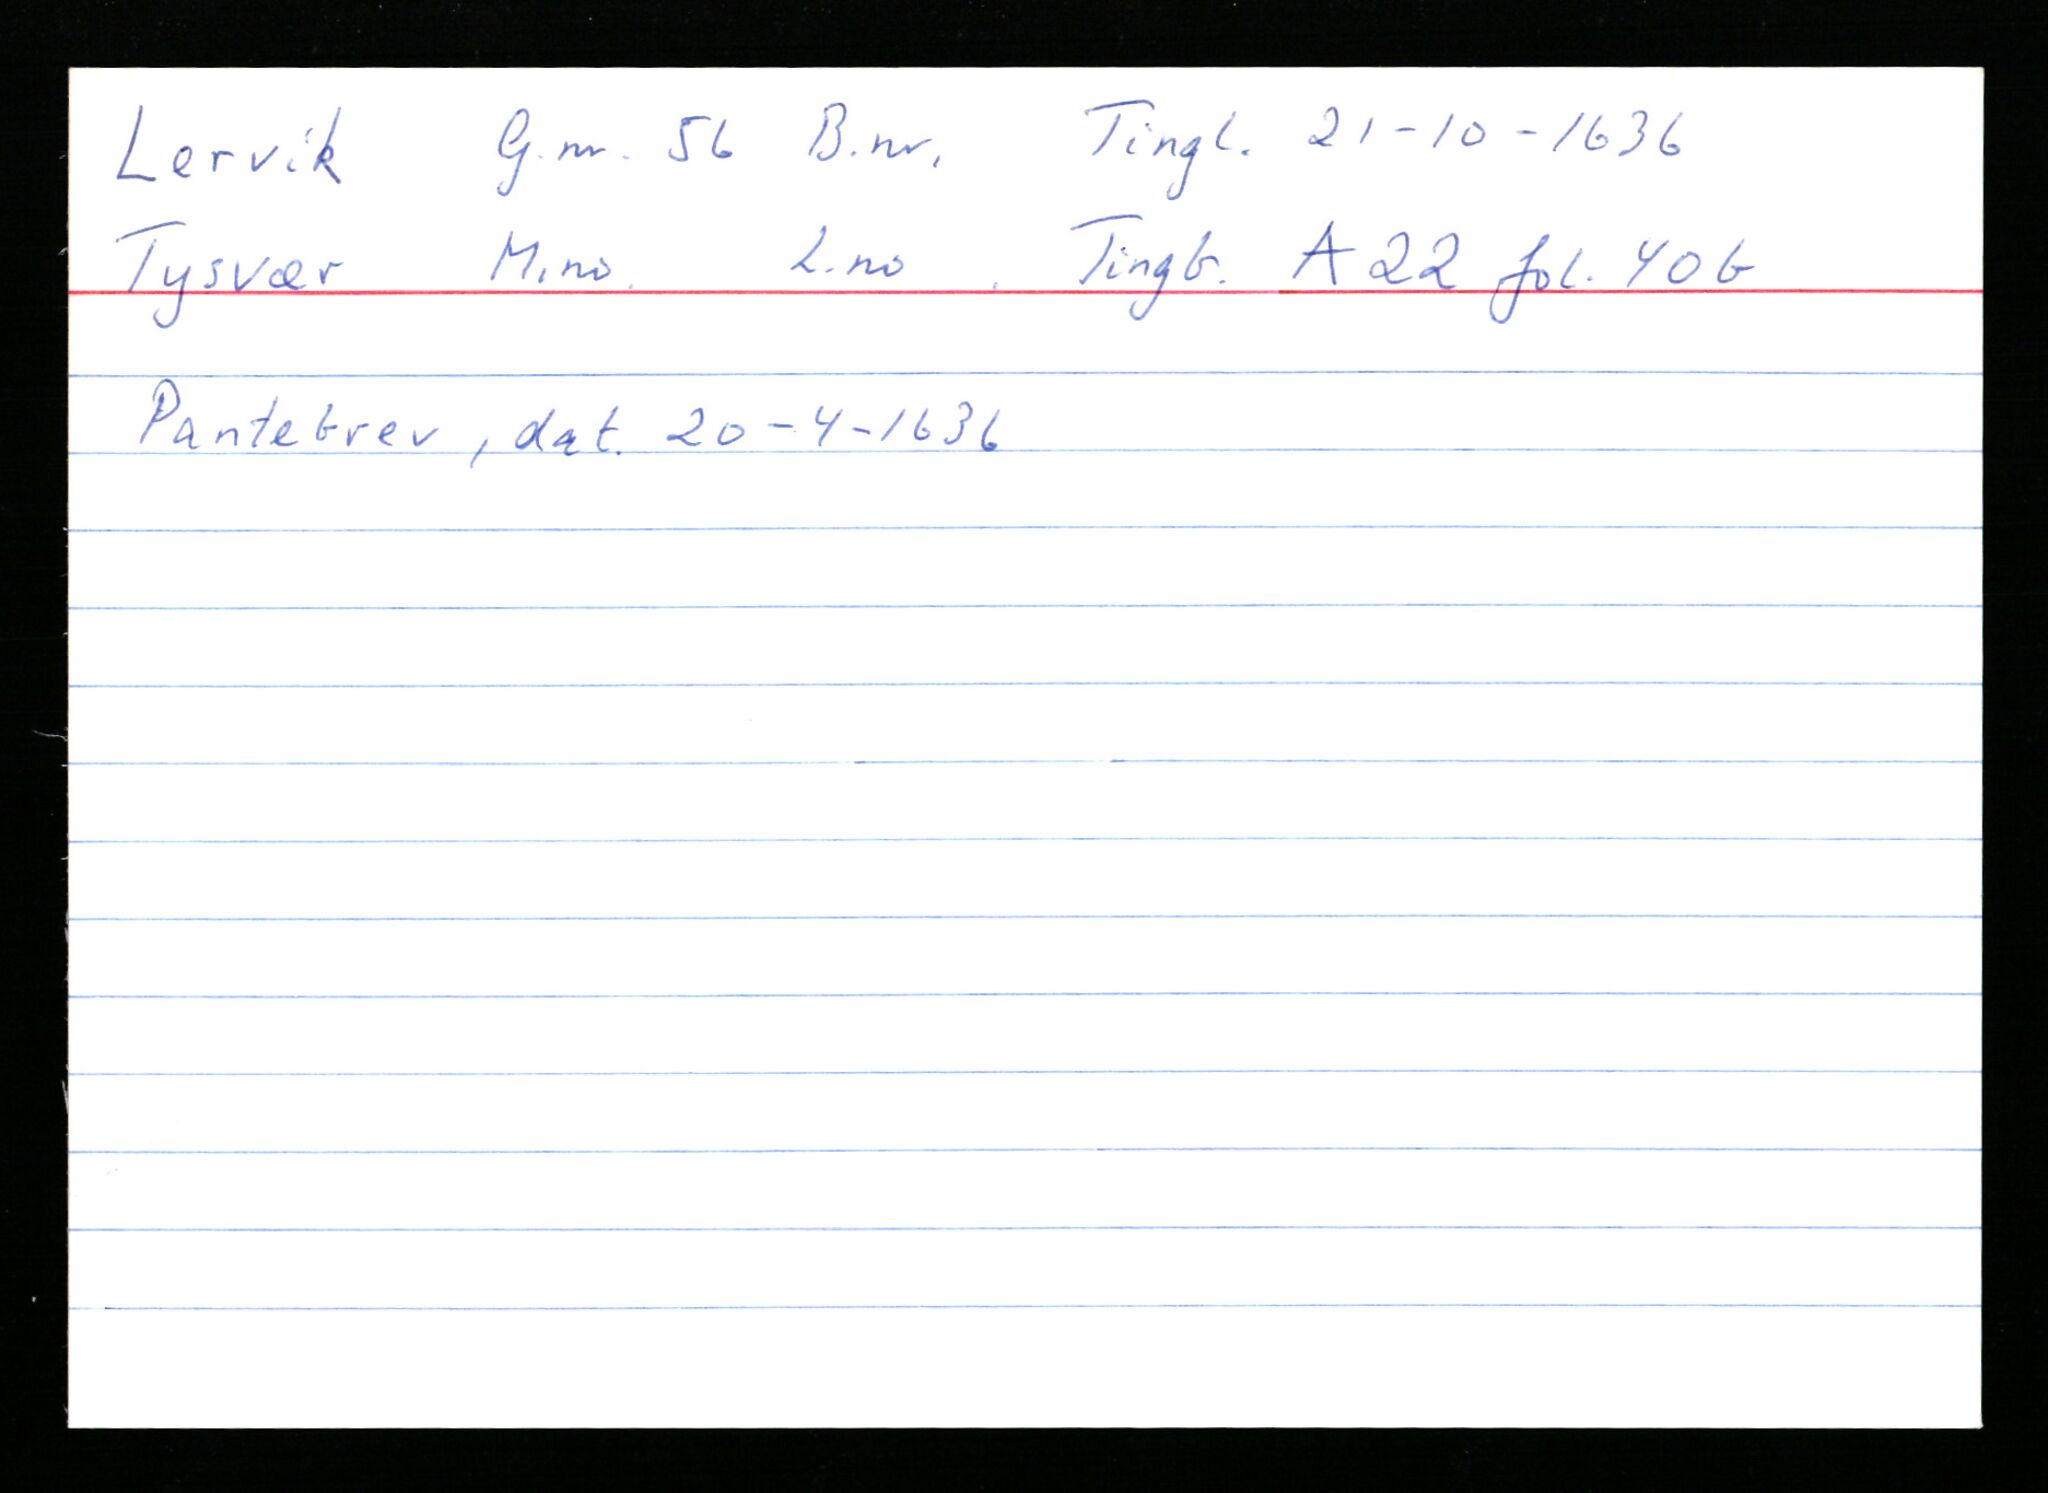 Lervik G.nr. 56 B.nr. Tingl. 21-10-1636
Tysvær M.no. L.no. Tingb. A 22 fol. 40b
Pantebrev, dat. 20-4-1636